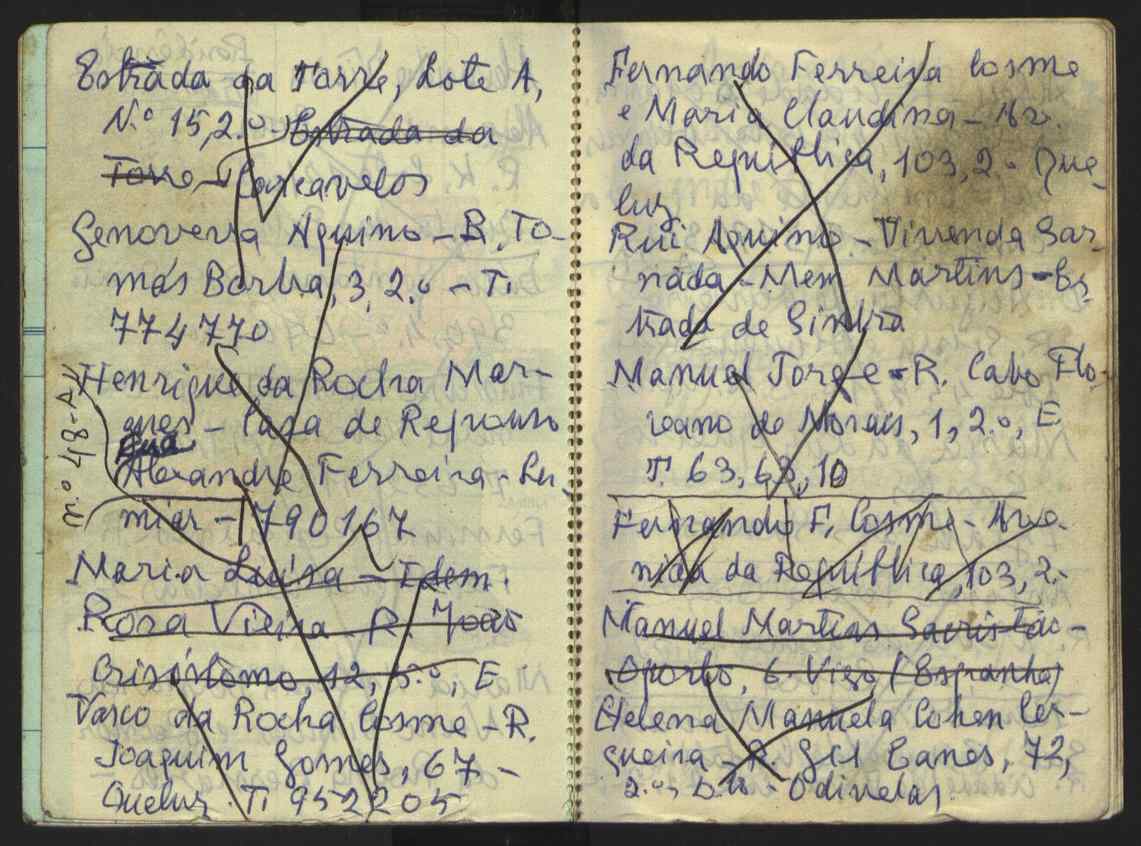 Estrada da Torre, Lote A,
N.º 15, 2.º - Estrada da
Torre - Carcavelos
Genoveva Aquino - R. To-
más Borba, 3, 2.º - T.
774770
Henrique da Rocha Mar-
ques - Casa de Repouso
Rua
Alexandre Ferreira - Lu-
miar - 790167
n.º 48-A
Maria Luísa - Idem.
Rosa Vieira - R. João
Crisóstomo, 12, 5.º, E
Vasco da Rocha Cosme - R.
Joaquim Gomes, 67 -
Queluz. T. 952205
Fernando Ferreira Cosme
e Maria Claudina - Av.
da República, 103, 2.º Que-
luz
Rui Aquino - Vivenda Gar-
nada - Mem Martins - Es-
trada de Sintra
Manuel Jorge - R. Cabo Flo-
reano de Morais, 1, 2.º, E
T. 63, 68, 10
Fernando F. Cosme - Ave-
nida da República, 103, 2.-
Manuel Martins Sacristão -
Oporto, 6 - Vigo (Espanha)
Helena Manuela Cohen Cer-
queira - R. Gil Eanes, 72,
2.º, D.to - Odivelas.